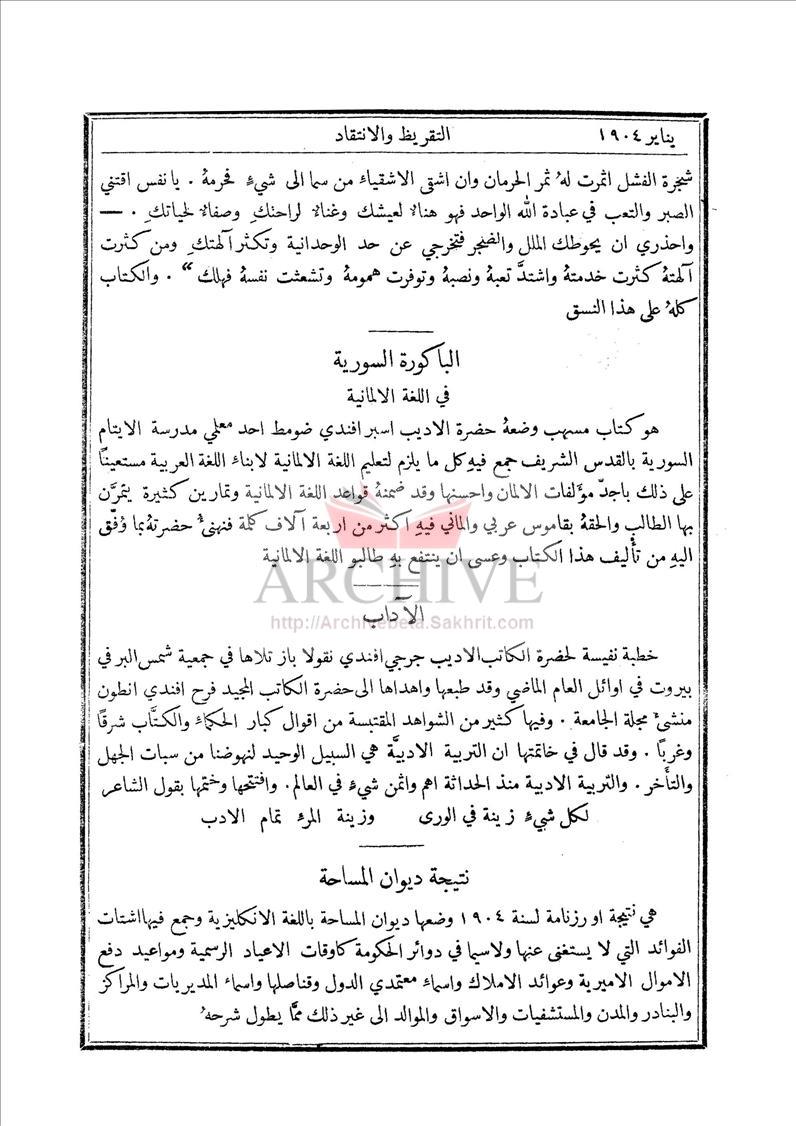 يناير ١٩٠٤ التقريظ والانتقاد
شجرة الفشل اثمرت لهُ ثمر الحرمان وان اشقى الاشقياء من سما الى شيءٍ فحرمهُ . يا نفس اقتني
الصبر والتعب في عبادة الله الواحد فهو هناءٌ لعيشك وغناءٌ لراحتكِ وصفاءٌ لحياتكِ . —
واحذري ان يحوطك الملل والضجر فتخرجي عن حد الوحدانية وتكثر آلهتكِ ومن كثرت
آلهتهُ كثرت خدمتهُ واشتدَّ تعبهُ ونصبهُ وتوفرت همومهُ وتشعثت نفسهُ فهلك “ . والكتاب
كلهُ على هذا النسق
الباكورة السورية
في اللغة الالمانية
هو كتاب مسهب وضعهُ حضرة الاديب اسبر افندي ضومط احد معلمي مدرسة الايتام
السورية بالقدس الشريف جمع فيهِ كل ما يلزم لتعليم اللغة الالمانية لابناء اللغة العربية مستعينًا
على ذلك باجدّ مؤلفات الالمان واحسنها وقد ضمنهُ قواعد اللغة الالمانية وتمارين كثيرة يتمرَّن
بها الطالب والحقهُ بقاموس عربي والماني فيهِ اكثر من اربعة آلاف كلمة فنهنئُ حضرتهُ بما وُفّق
اليهِ من تأليف هذا الكتاب وعسى ان ينتفع بهِ طالبو اللغة الالمانية
ARCHIVE
الآداب
http://Archivebeta.Sakhrit.com
خطبة نفيسة لحضرة الكاتب الاديب جرجي افندي نقولا باز تلاها في جمعية شمس البر في
بيروت في اوائل العام الماضي وقد طبعها واهداها الى حضرة الكاتب المجيد فرح افندي انطون
منشئ مجلة الجامعة . وفيها كثير من الشواهد المقتبسة من اقوال كبار الحكماء والكتَّاب شرقًا
وغربًا . وقد قال في خاتمتها ان التربية الادبيَّة هي السبيل الوحيد لنهوضنا من سبات الجهل
والتأخر . والتربية الادبية منذ الحداثة اهم واثمن شيءٍ في العالم . وافتتحها وختمها بقول الشاعر
لكل شيءٍ زينة في الورى وزينة المرءِ تمام الادب
نتيجة ديوان المساحة
هي نتيجة او رزنامة لسنة ١٩٠٤ وضعها ديوان المساحة باللغة الانكليزية وجمع فيها اشتات
الفوائد التي لا يستغنى عنها ولاسيما في دوائر الحكومة كاوقات الاعياد الرسمية ومواعيد دفع
الاموال الاميرية وعوائد الاملاك واسماء معتمدي الدول وقناصلها واسماء المديريات والمراكز
والبنادر والمدن والمستشفيات والاسواق والموالد الى غير ذلك ممَّا يطول شرحهُ